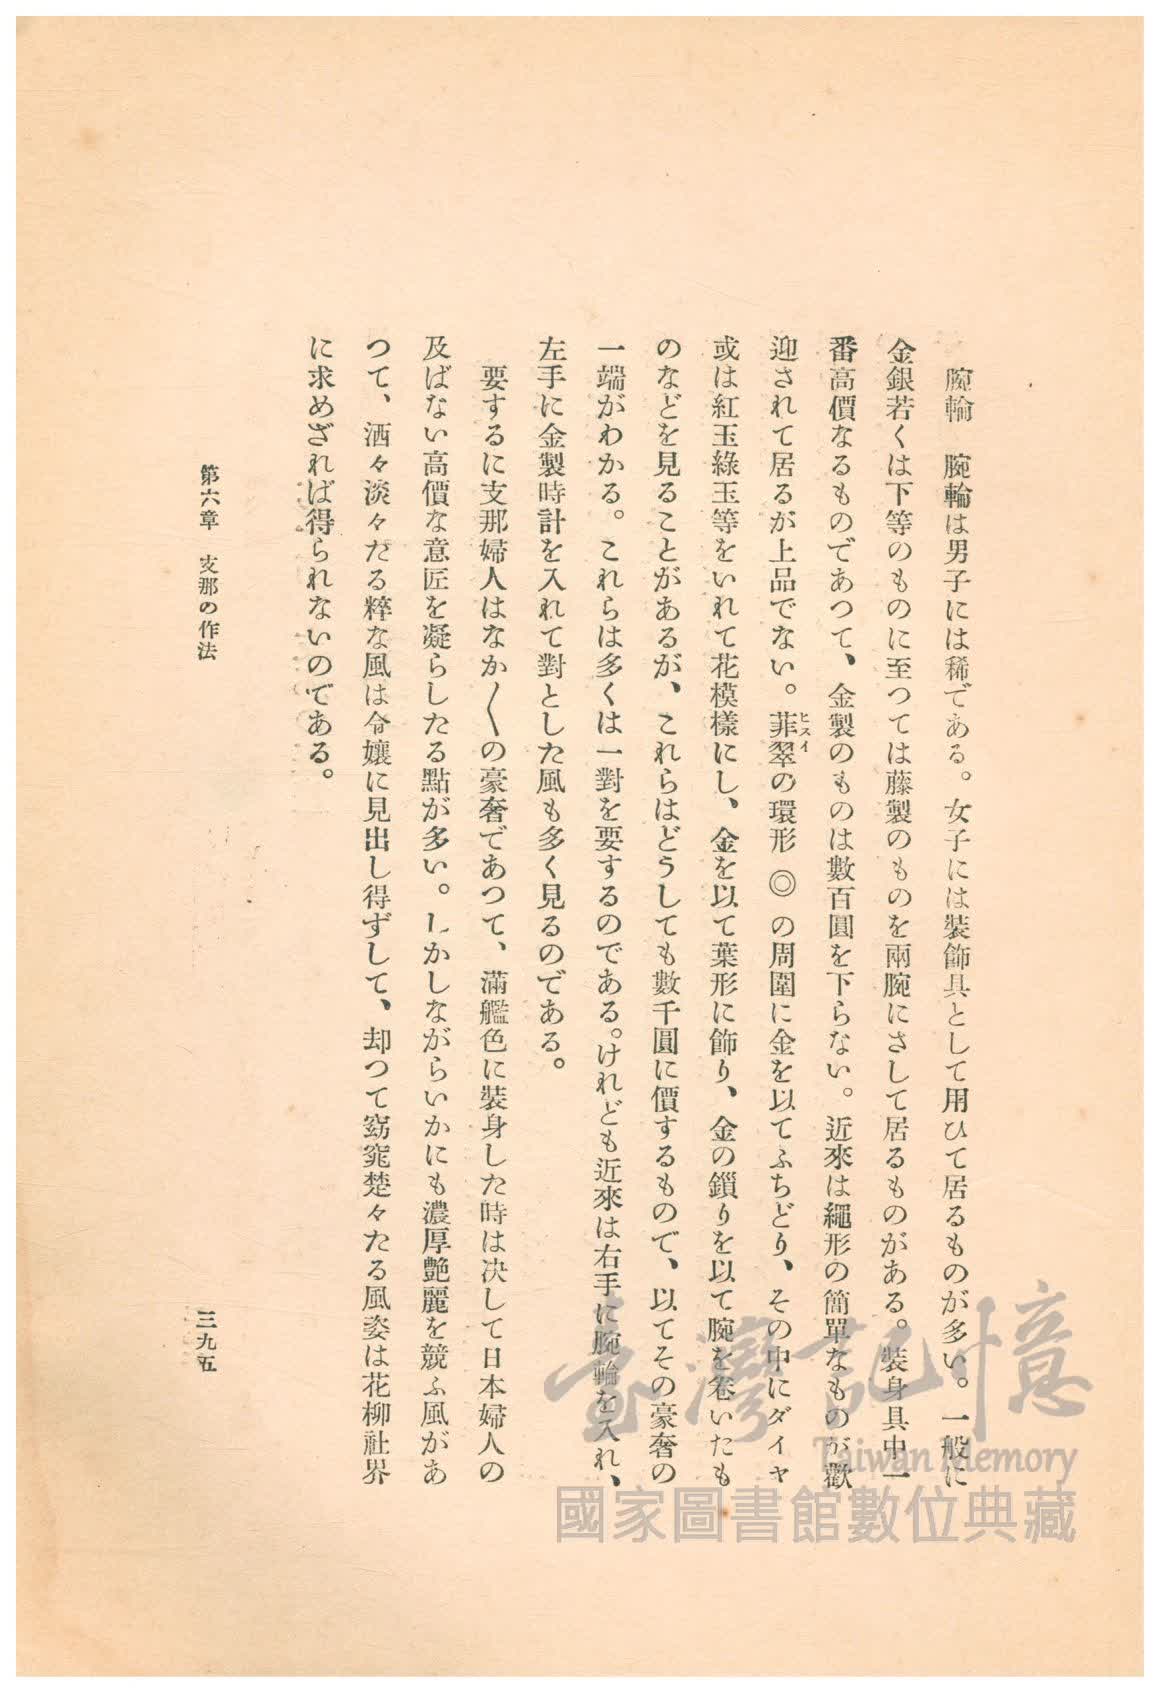 腕輪　腕輪は男子には稀である。女子には裝飾具として用ひて居るものが多い。一般に
金銀若くは下等のものに至つては藤製のものを兩腕にさして居るものがある。裝身具中一
番高價なるものであつて、金製のものは數百圓を下らない。近來は繩形の簡單なものが歡
迎されて居るが上品でない。菲翠の環形 ◎ の周圍に金を以てふちどり、その中にダイヤ
ヒスイ
或は紅玉綠玉等をいれて花模樣にし、金を以て葉形に飾り、金の鎖りを以て腕を卷いたも
のなどを見ることがあるが、これらはどうしても數千圓に價するもので、以てその豪奢の
一端がわかる。これらは多くは一對を要するのである。けれども近來は右手に腕輪を入れ、
左手に金製時計を入れて對とした風も多く見るのである。
要するに支那婦人はなか〳〵の豪奢であつて、滿艦色に裝身した時は決して日本婦人の
及ばない高價な意匠を凝らしたる點が多い。しかしながらいかにも濃厚艶麗を競ふ風があ
つて、洒々淡々たる粹な風は令孃に見出し得ずして、却つて窈窕楚々たる風姿は花柳社界
に求めざれば得られないのである。
第六章　支那の作法
三九五
臺灣記憶
Taiwan Memory
國家圖書館數位典藏